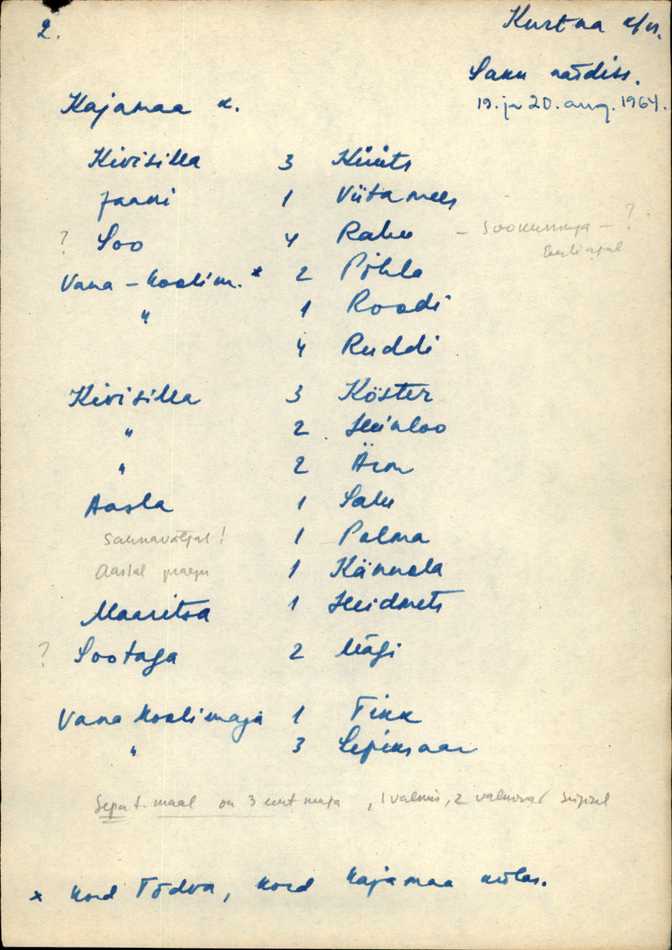 2.
Kurtna k/n.
Saku näidiss.
19. ja 20. aug. 1964.
Kajamaa k.
Kivisilla 3 Küüts
Jaani 1 Viitamees
? Soo 4 Rahu - Sookurmuja - ?
Eestiajal
Vana-koolim.* 2 Pihla
" 1 Roodi
4 Ruddi
Kivisilla 3 Köster
" 2 Heinloo
" 2 Äron
Aasla 1 Salu
Saunaväljal! 1 Palma
Aaslal praegu 1 Kännala
Maaritsa 1 Heidmets
? Sootaga 2 Mägi
Vana koolimaja 1 Tikk
" 3 Lepiksaar
maal on 3 uut maja, 1 valmis, 2 valmivad sügisel
* kord Tõdva, kord Kajamaa külas.